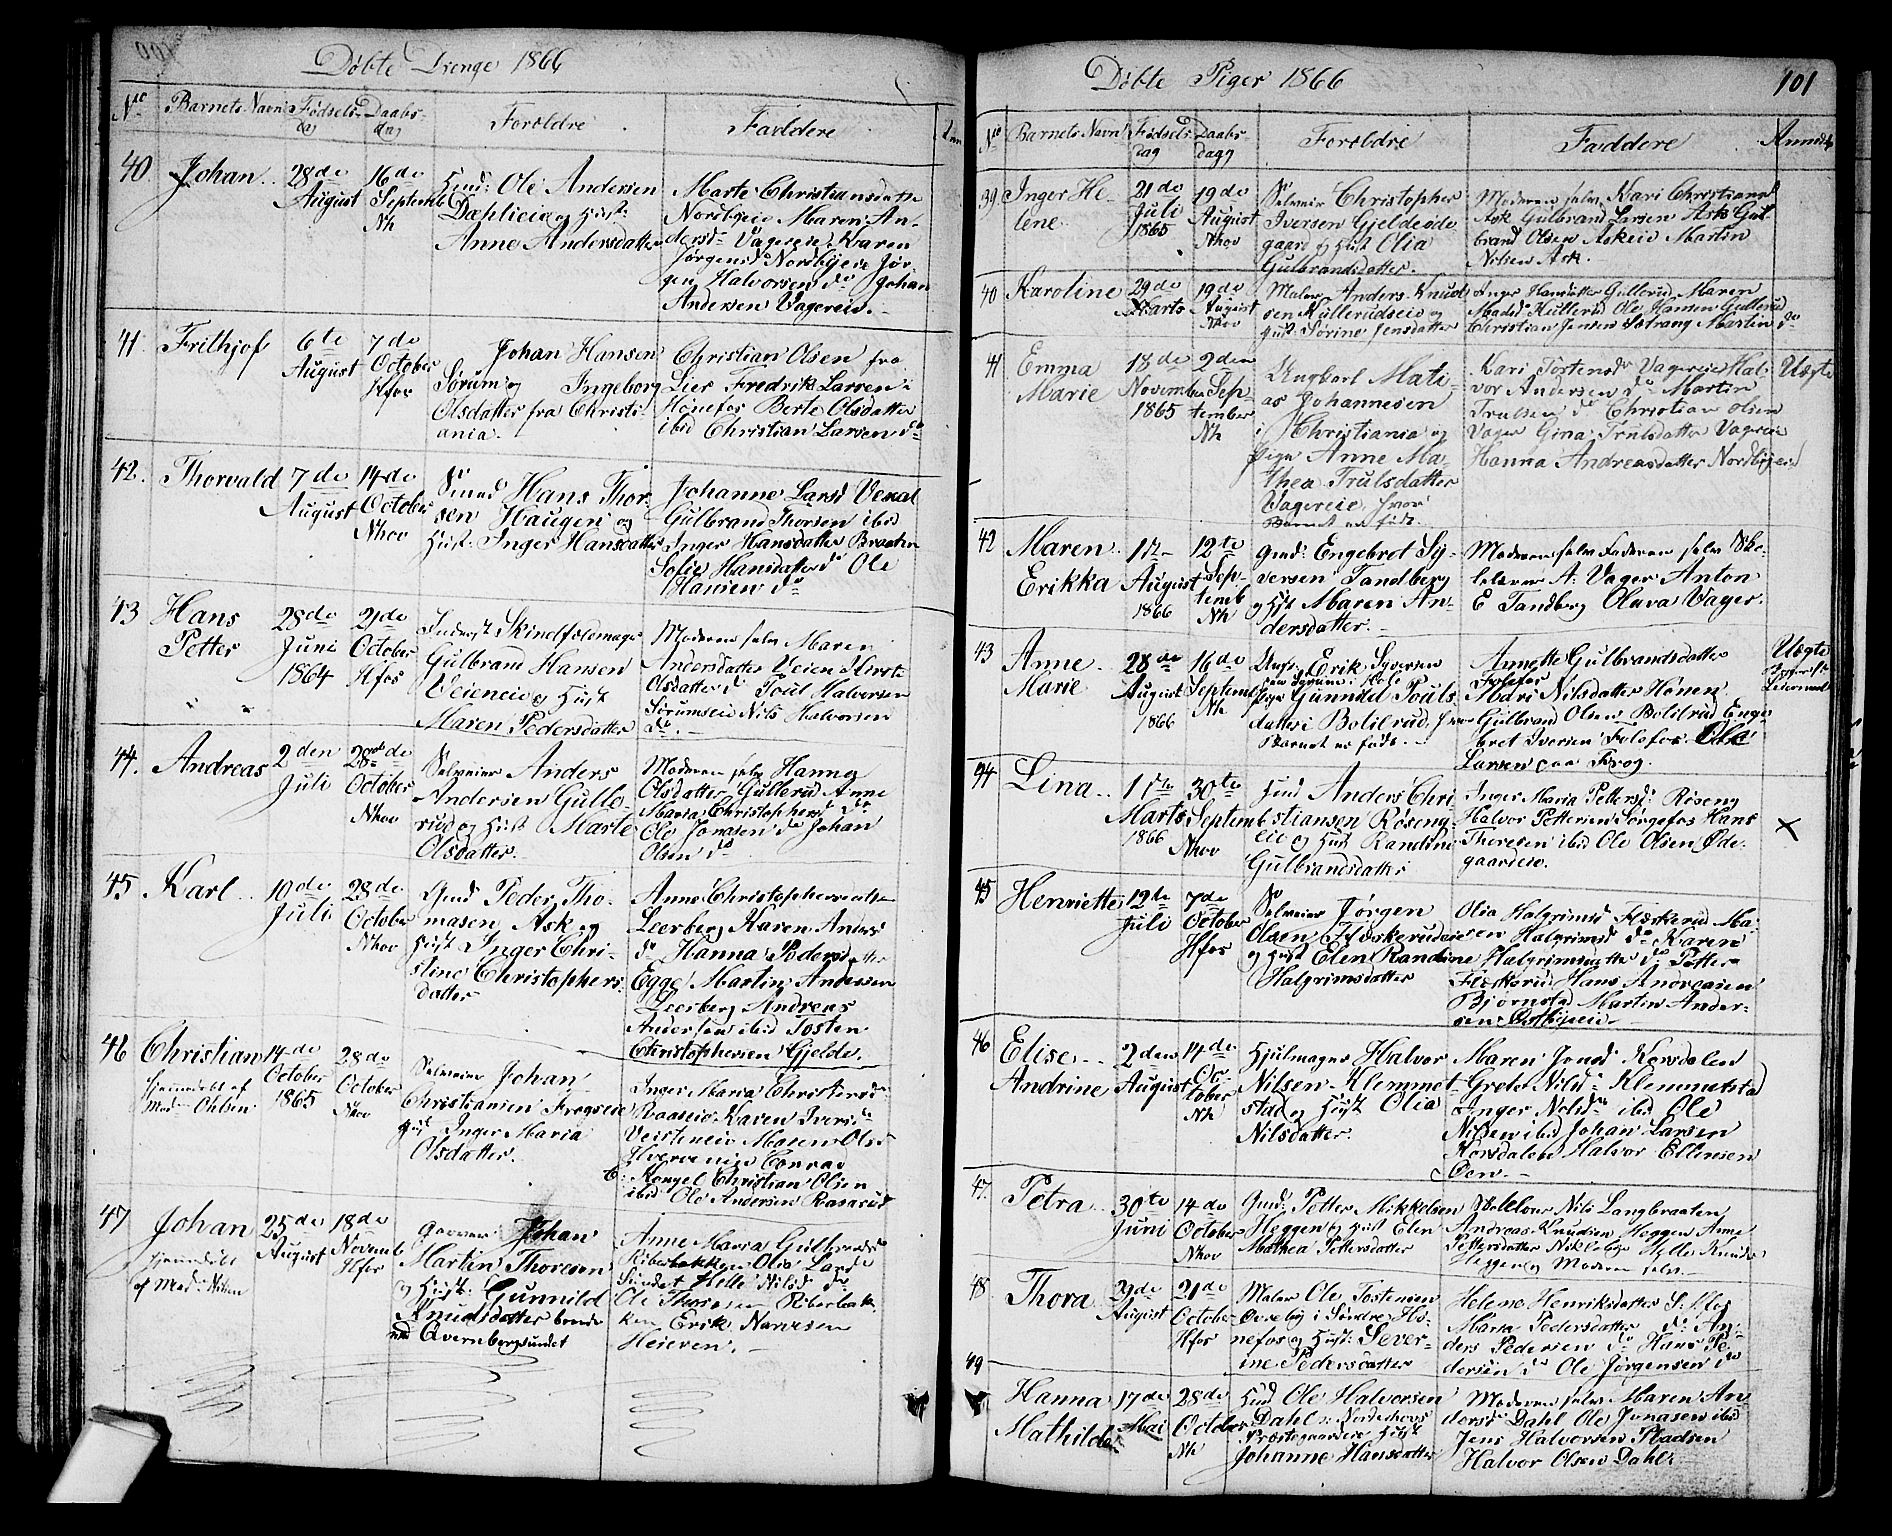 Døbte Drenge 1866
No Barnets Navn Fødsels- Daabs- Forældre Faddere
dag dag
40. Johan 28de August 16de Septemb Nh
Ole Andersen
Dæhlieie og Hust:
Anne Andersdatter
Marte Christiansdatter
Nordbyeie Maren An-
dersd: Vagereie Karen
Jørgensd Nordbyeie Jør-
gen Halvorsen do Johan
Andersen Vagereie.
41. Frithjof 6te August 7de October Hfos
Johan Hansen
Sørum og Ingeborg
Olsdatter fra Christi-
ania.
Christian Olsen fra
Lier Fredrik Larsen
Hønefos Berte Olsdatter
ibid Christian Larsen do
42. Thorvald 7de August 14de October Nhov
Smed Hans Thor-
sen Haugen og
Hust: Inger Hansdatter
Johanne Larsd
Gulbrand Thorsen ibid
Inger Hansdatter Braaten
Sofie Hansdatter do Ole
Hansen do
43 Hans Petter 28de Juni 1864 21de October Hfos
Inderst Skindfeldmager
Gulbrand Hansen
Veieneie og Hust
Maren Pedersdatter
Moderen selv Maren
Andersdatter Veien
Olsdatter do Halvorsen
Sørumseie Nils Halvorsen
do.
44. Andreas 2den Juli 28de October Nhov
Selveier Anders
Andersen Gulle-
rud og Hust Marte
Olsdatter.
Moderen selv Hanna
Olsdatter Gullerud Anne
Maria Christophersd do
Ole Jonasen do Johan
Olsen do
45 Karl 10de Juli 28de October Nhov
Gmd Peder Tho-
masen Ask og
Hust Inger Chri-
stine Christophers-
datter
Anne Christophersdatter
Leerberg Karen Anders
do Hanna Pedersdatter
Egge Martin Andersen
Leerberg Andreas
Andersen ibid Tosten
Christophersen Gjelde.
46 Christian 14de October 1865 28de October Nhov
hjemmedøbt af
Mad Ohlsen
Selveier Johan
Christiansen Frogseie
Hust Inger Maria
Olsdatter.
Inger Maria Christensd
Karen Iversd
Maren Olsd
Conrad
Christian Olsen
ibid Ole Andersen
47 Johan 25de August 18de Novemb Hfos
hjemmedøbt
af Mad: Nilsen
Johan
Martin Thoresen
og Hust: Gunnild
Knudsdatter boende
ved Qvernbergsundet
Anne Maria Gulbrandsd
Riberbakken Olia Larsd
Sundet Helle Nilsd do
Ole Thoresen Riberbak-
ken, Erik Narvesen
Heieren.
Døbte Piger 1866 101
No Barnets Navn Fødsels- Daabs- Forældre Faddere Anmærk
dag dag
39 Inger He-
lene. 21de Juli 1865 19de August Nhov
Selveier Christopher
Iversen Gjeldeøde-
gaard og Hust Olia
Gulbrandsdatter.
Moderen selv Kari Christiansd
Ask Gulbrand Larsen Ask Gul-
brand Olsen Askeie Martin
Nilsen Ask.
40 Karoline 29de Marts 19de August Nhov
Maler Anders Knud-
sen Küllerudseie og
Hust. Sørine Jensdatter
Inger Hansdatter Gullerud Maren
Madsd Küllerud Ole Hansen Gullerud
Christian Jensen Martin do
41 Emma Marie 18de November 1865 2den Sep-
tember Nh
Ungkarl Mati-
as Johannesen
i Christiania og
Pige Anne Ma-
thea Trulsdatter
Vagereie, hvor
Barnet er født.
Kari Tostensdr Vagereie Hal-
vor Andersen do Martin
Trulsen do Christian Olsen
Vager Gina Trulsdatter Vagereie
Hanna Andreasdatter Nordbyeie
Uægte
42 Maren Erikka 1ste August 1866 12te Sep-
temb Nh
Gmd: Engebret Sy-
versen Tandberg
og Hst Maren An-
dersdatter.
Moderen selv Faderen selv
A. Vager Anton
E Tandberg Olava Vager.
43 Anne Marie 28de August 1866 16de Septemb Nh
Ungk: Erik Syversen
Pige Gunnild Pouls-
datter i Bolilrud, hvor
Barnet er født.
Annette Gulbrandsdatter
Mari Nilsdatter Hønen
Gulbrand Olsen Bolilrud Enge-
bret Iversen Ole
Larsen paa Frog.
Uægte
44 Lina 1ste Marts 1866 30te Septemb Nhov
Anders Chri-
stiansen Røseng-
eie og Hust Randine
Gulbrandsdatter
Inger Maria Pettersd: Røseng
Halvor Pettersen Sørgefos Hans
Thoresen ibid Ole Olsen Øde-
gaardeie.
X
45 Henriette 12te Juli 7de October Hfos
Selveier Jørgen
Olsen Flæskerudeie
og Hust Elen Randine
Halgrimsdatter
Olia Halgrimsd Flæskerud Ma-
ren Halgrimsd do Karen
Halgrimsdatter do Petter
Flæskerud Hans Andreasen
Bjørnstad Martin Ander-
sen
46 Elise Andrine 2den August 14de Oc-
tober Nh
Hjulmager Halvor
Nilsen Klemmet-
stad og Hust Olia
Nilsdatter.
Maren Jonsd Korsdalen
Grete Nilsd Klemmetstad
Inger Nilsdr ibid Ole
Nilsen ibid Johan Larsen
Korsdalen Halvor Ellensen
Øen.
47. Petra 30te Juni 14de October Nhov
Gmd: Petter Mikkelsen
Heggen og Hust Elen
Mathea Pettersdatter
Skolelærer Nils Langbraaten
Andreas Knudsen Heggen Anne
Pettersdatter Nikleby Helle Knudsd
Heggen og Moderen selv.
48 Thora 29de August 21de October Hfos
Maler Ole Tostensen
Øvreby i Søndre Hø-
nefos og Hust: Sever-
ine Pedersdatter
Helene Henriksdatter S. Hfos
Maria Pedersdatter do An-
ders Pedersen do Hans Pe-
dersen do Ole Jørgensen do
49 Hanna Mathilde 17de Mai 28de October Nh
Ole Halvorsen
Dahl v: Norderhovs
Præstegaardeie Hust
Johanne Hansdatter
Moderen selv Maren An-
dersd Dahl Ole Jonasen ibid
Jens Halvorsen Pladsen
Halvor Olsen Dahl.